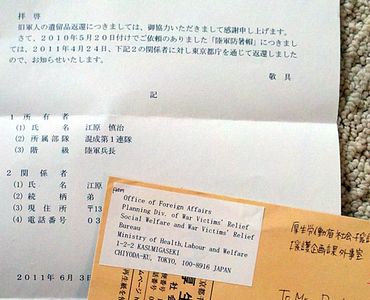 拝 啓
旧軍人の遺留品返還につきましては、御協力いただきまして感謝申し上げます。
さて、2010年5月20日付けでご依頼のありました「陸軍防暑帽」につきまして
は、2011年4月24日、下記2の関係者に対し東京都庁を通じて返還しました
ので、お知らせいたします。
敬 具
記
1 所有者
(1) 氏 名 江原 慎治
(2) 所属部隊 混成第1連隊
(3) 階 級 陸軍兵長
2 関係者
(1) 氏 名 江原
(2) 続 柄 弟
(3) 現住所 〒13
(4) 電話番号 03
2011年6月3
Office of Foreign Affairs
Planning Div. of War Victims' Relief
Social Welfare and War Victims' Relief
Bureau
Ministry of Health, Labour and Welfare
1-2-2 KASUMIGASEKI
CHIYODA-KU, TOKYO, 100-8916 JAPAN
厚生労働省社会・援護
援護企画課外事室
To Mr.